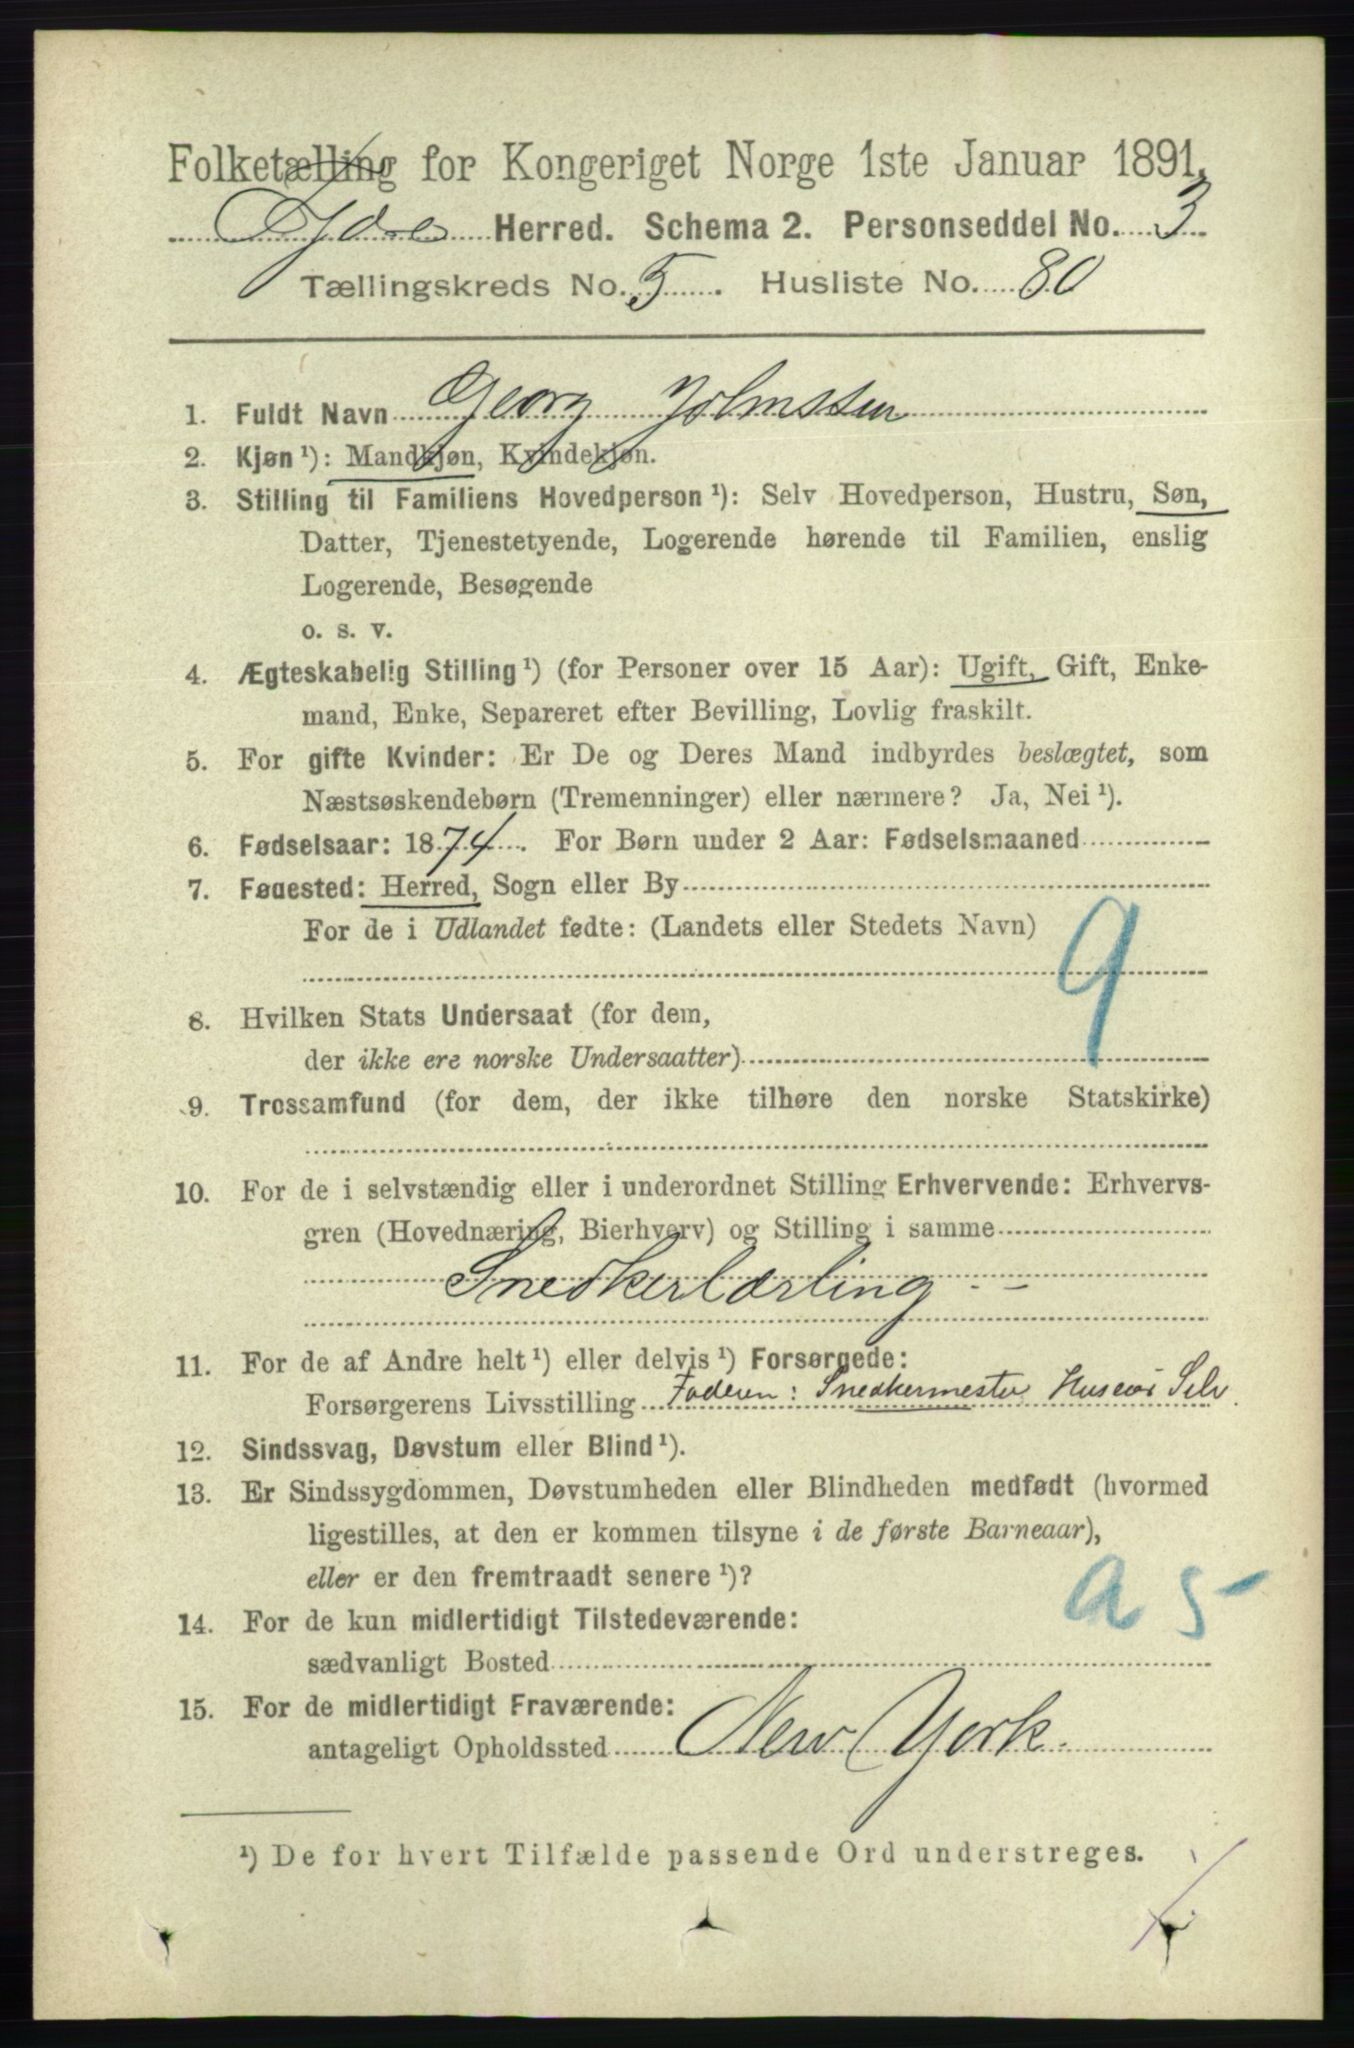 Folketælling for Kongeriget Norge 1ste Januar 1891.
Idde Herred. Schema 2. Personseddel No. 3
Tællingskreds No. 5. Husliste No. 80
1. Fuldt Navn Georg Johnssen
2. Kjøn ¹): Mandkjøn, Kvindekjøn.
3. Stilling til Familiens Hovedperson ¹): Selv Hovedperson, Hustru, Søn,
Datter, Tjenestetyende, Logerende hørende til Familien, enslig
Logerende, Besøgende
o. s. v.
4. Ægteskabelig Stilling ¹) (for Personer over 15 Aar): Ugift, Gift, Enke-
mand, Enke, Separeret efter Bevilling, Lovlig fraskilt.
5. For gifte Kvinder: Er De og Deres Mand indbyrdes beslægtet, som
Næstsøskendebørn (Tremenninger) eller nærmere? Ja, Nei ¹).
6. Fødselsaar: 1874. For Børn under 2 Aar: Fødselsmaaned
7. Fødested: Herred, Sogn eller By
For de i Udlandet fødte: (Landets eller Stedets Navn)
9
8. Hvilken Stats Undersaat (for dem,
der ikke ere norske Undersaatter)
9. Trossamfund (for dem, der ikke tilhøre den norske Statskirke)
10. For de i selvstændig eller i underordnet Stilling Erhvervende: Erhvervs-
gren (Hovednæring, Bierhverv) og Stilling i samme
Snedkerlærling
11. For de af Andre helt ¹) eller delvis ¹) Forsørgede:
Forsørgerens Livsstilling Faderen: Snedkermester Huseier Selv.
12. Sindssvag, Døvstum eller Blind ¹).
13. Er Sindssygdommen, Døvstumheden eller Blindheden medfødt (hvormed
ligestilles, at den er kommen tilsyne i de første Barneaar),
eller er den fremtraadt senere ¹)?
a 5
14. For de kun midlertidigt Tilstedeværende:
sædvanligt Bosted
15. For de midlertidigt Fraværende:
antageligt Opholdssted New York.
¹) De for hvert Tilfælde passende Ord understreges.